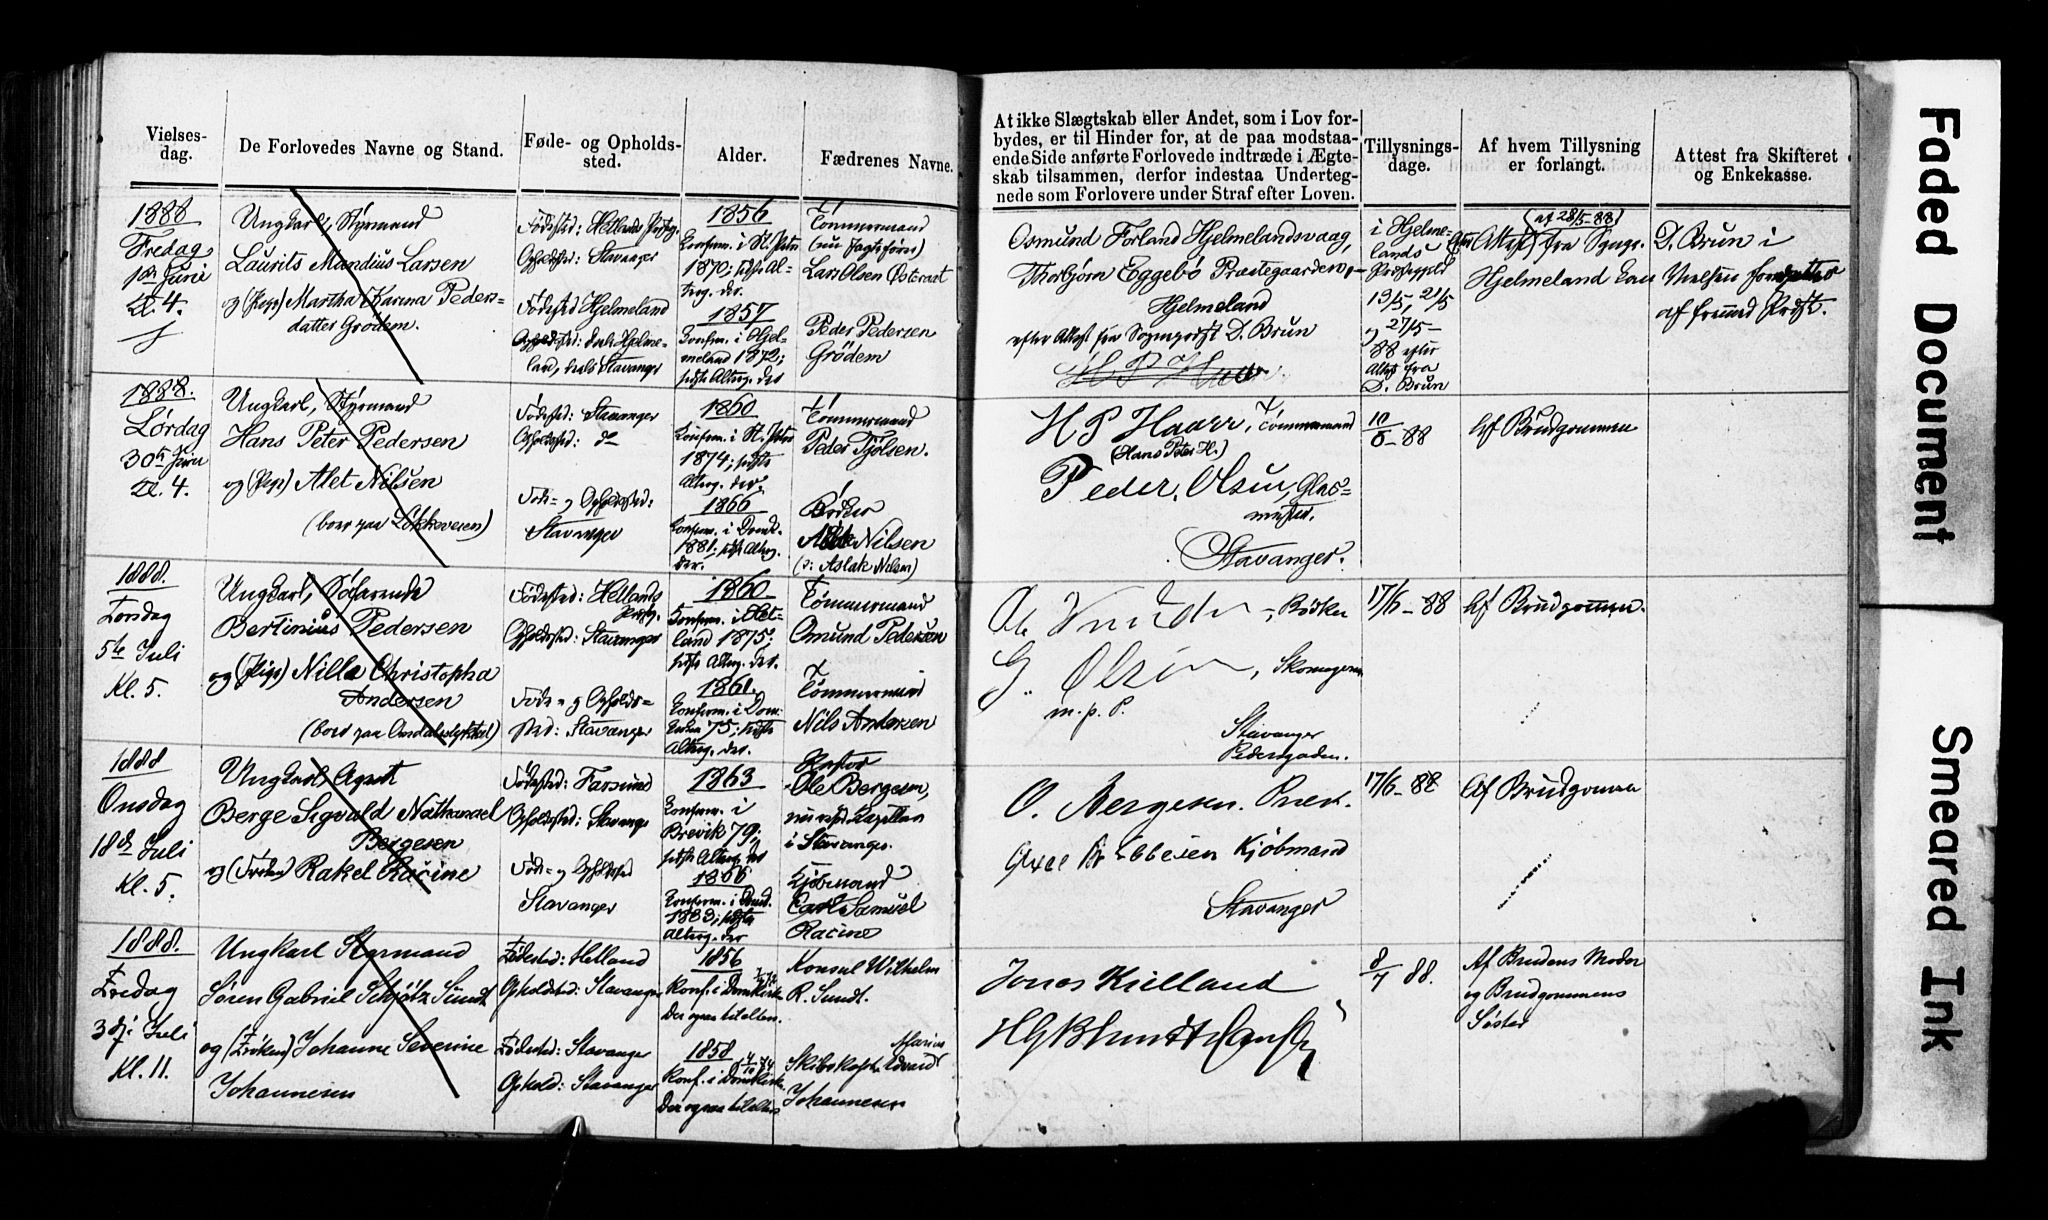 Vielses-
dag.
De Forlovedes Navne og Stand.
Føde- og Opholds-
sted.
Alder.
Fædrenes Navne.
At ikke Slægtskab eller Andet, som i Lov for-
bydes, er til Hinder for, at de paa modstaa-
ende Side anførte Forlovede indtræde i Ægte-
skab tilsammen, derfor indestaa Underteg-
nede som Forlovere under Straf efter Loven.
Tillysnings-
dage.
Af hvem Tillysning
er forlangt.
Attest fra Skifteret
og Enkekasse.
1888
Fredag
1ste Juni
Kl. 4.
Ungkarl, Styrmand
Laurits Mandius Larsen
og (Pige) Martha Karina Peders-
datter Grödem.
Fødested: Hetlands Præstg.
Opholdssted: Stavanger
Fødested Hjelmeland
Opholdssted: dels Hjelme-
land, dels Stavanger
1856
Konfirm. i St. Petri
1870; sidste Al-
terg. der.
1857
Konfirm. i Hjel-
meland 1872;
sidste Alterg. der
Tømmermand
(nu Jagtefører)
Lars Olsen Østeraat
Peder Pedersen
Grödem
Osmund Førland Hjelmelandsvaag,
Thorbjørn Eggebø Præstegaarden
Hjelmeland
efter Attest fra Sogneprest D. Brun
H P Haar
i Hjelme-
lands
Præstegjeld
13/5, 21/5
og 27/5
88 efter
Attest fra
D. Brun
(af 28/5-88)
Attest fra Sogpr.
Hjelmeland
D. Brun i
af Provst.
1888.
Lørdag
30te Juni
Kl. 4.
Ungkarl, Styrmand
Hans Peter Pedersen
og (Pige) Alet Nilsen
(boer paa Løkkeveien)
Fødested: Stavanger
Opholdssted: do
Føde- og Opholdssted:
Stavanger
1860
Konfirm. i St. Petri
1874; sidste
Alterg. der.
1866
Konfirm. i Domk.
1881; sidste Alterg.
der.
Tømmermand
Peder Tjølsen.
Nilsen
(: Aslak Nilsen)
H P Haarr, Tømmermand
(Hans Peter H.)
Peder Olsen, Glas-
mester.
Stavanger.
10/6-88
Af Brudgommen
1888.
Torsdag
5te Juli
Kl. 5.
Ungkarl, Søfarende
Bertinius Pedersen
og (Pige) Nilla Christopha
Andersen
Fødested: Hetlands
Præstg.
Opholdssted: Stavanger
Føde- og Opholds-
sted: Stavanger
1860
Konfirm. i Het-
land 1875;
sidste Alterg. der.
1861.
Konfirm. i Dom-
kirken 75; sidste
Alterg. der.
Tømmermand
Omund Pedersen
Tømmermand
Nils Andersen
Bødker
G. Olsen, Skomager
m. p. P.
Stavanger
Pedersgaden.
17/6-88
Af Brudgommen.
1888
Onsdag
18de Juli
Kl. 5.
Ungkarl, Agent
Berge Sigvald Nathanael
Bergesen
og (Frøken) Rakel Racine
Fødested: Farsund
Opholdssted: Stavanger
Føde- og Opholdssted
Stavanger
1863
Konfirm. i
Brevik 79;
sidste Alterg. der
1866
Konfirm. i Domk.
1883; sidste
Alterg. der
Pastor
Ole Bergesen,
Kapellan
i Stavanger.
Kjøbmand
Carl Samuel
Racine
O. Bergesen. Prest.
Kjøbmand
Stavanger
17/6-88
Af Brudgommen
1888.
Fredag
Juli
Kl. 11.
Ungkarl Styrmand
Søren Gabriel Schjøtz Sundt
og (Frøken) Johanne Severine
Johannesen
Fødested: Hetland
Opholdssted: Stavanger
Fødested: Stavanger
Ophold: Stavanger
1856
Konf. i Domkirke
Der ogsaa til alters.
1858
Konf. i Domkirke
Der ogsaa til alters
Konsul Wilhelm
R. Sundt.
Marius
Skibskapt. Edvard
Johannesen
Jonas Kielland
8/7 88.
Af Brudens Moder
og Brudgommens
Søster
Faded Document
Smeared Ink